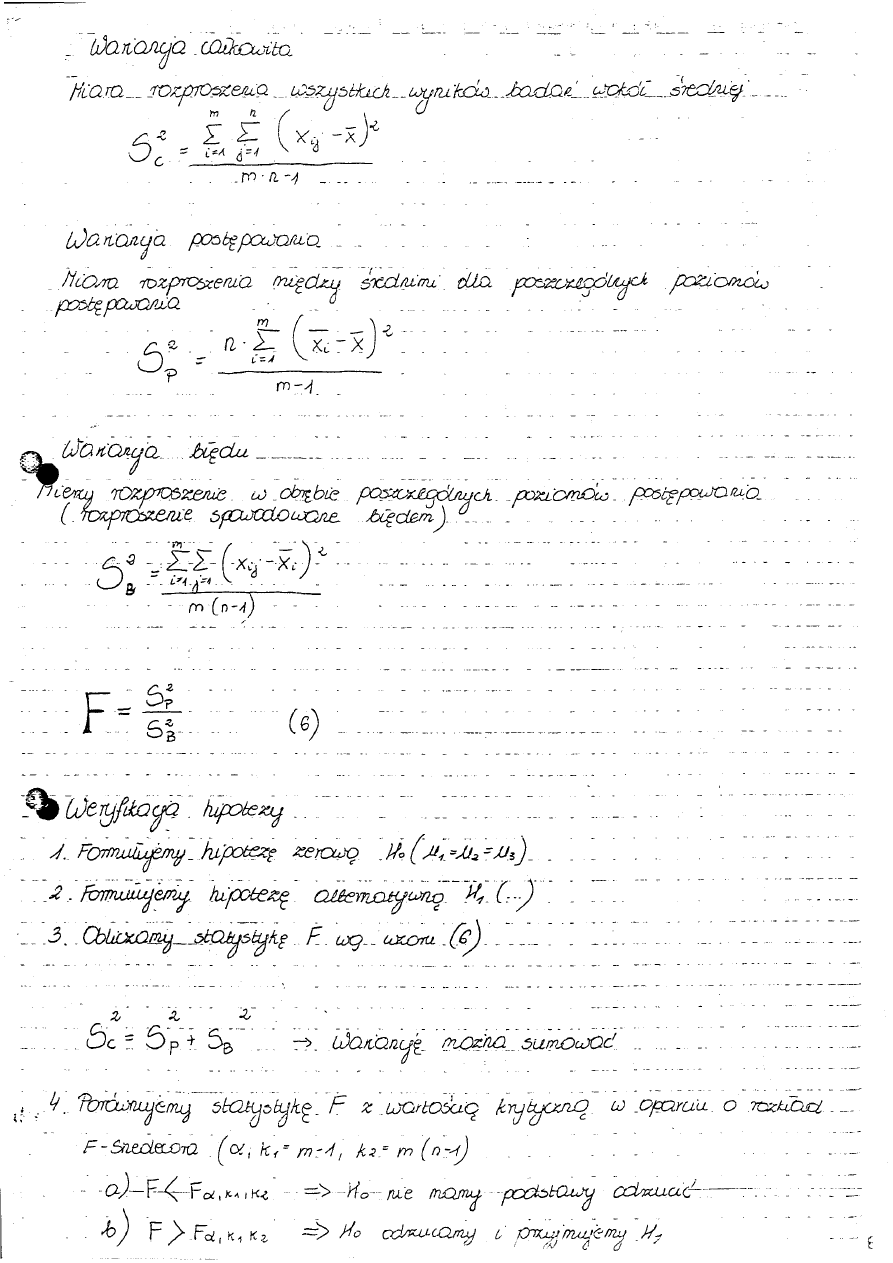 Wariancja całkowita
Miara rozproszenia wszystkich wyników badań wokół średniej
S_C^2 = \frac{\sum_{i=1}^{m} \sum_{j=1}^{n} (x_{ij} - \bar{x})^2}{m \cdot n - 1}
Wariancja postępowania
Miara rozproszenia między średnimi dla poszczególnych poziomów
postępowania
S_P^2 = \frac{n \cdot \sum_{i=1}^{m} (\bar{x_i} - \bar{x})^2}{m - 1}
Wariancja błędu
Mierzy rozproszenie w obrębie poszczególnych poziomów postępowania
(rozproszenie spowodowane błędem)
S_B^2 = \frac{\sum_{i=1}^{m} \sum_{j=1} (x_{ij} - \bar{x}_i)^2}{m(n-1)}
F = \frac{S_P^2}{S_B^2} (6)
Weryfikacja hipotezy
1. Formułujemy hipotezę zerową H₀ (μ₁=μ₂=μ₃)
2. Formułujemy hipotezę alternatywną H₁ (...)
3. Obliczamy statystykę F wg wzoru (6)
S_C^2 = S_P^2 + S_B^2 → Wariancję można sumować
4. Porównujemy statystykę F z wartością krytyczną w oparciu o rozkład
F-Snedecora (α, k₁= m-1, k₂= m(n-1)
a) F < F_{α, k₁, k₂} => H₀ nie mamy podstawy odrzucić
b) F > F_{α, k₁ k₂} => H₀ odrzucamy i przyjmujemy H₁